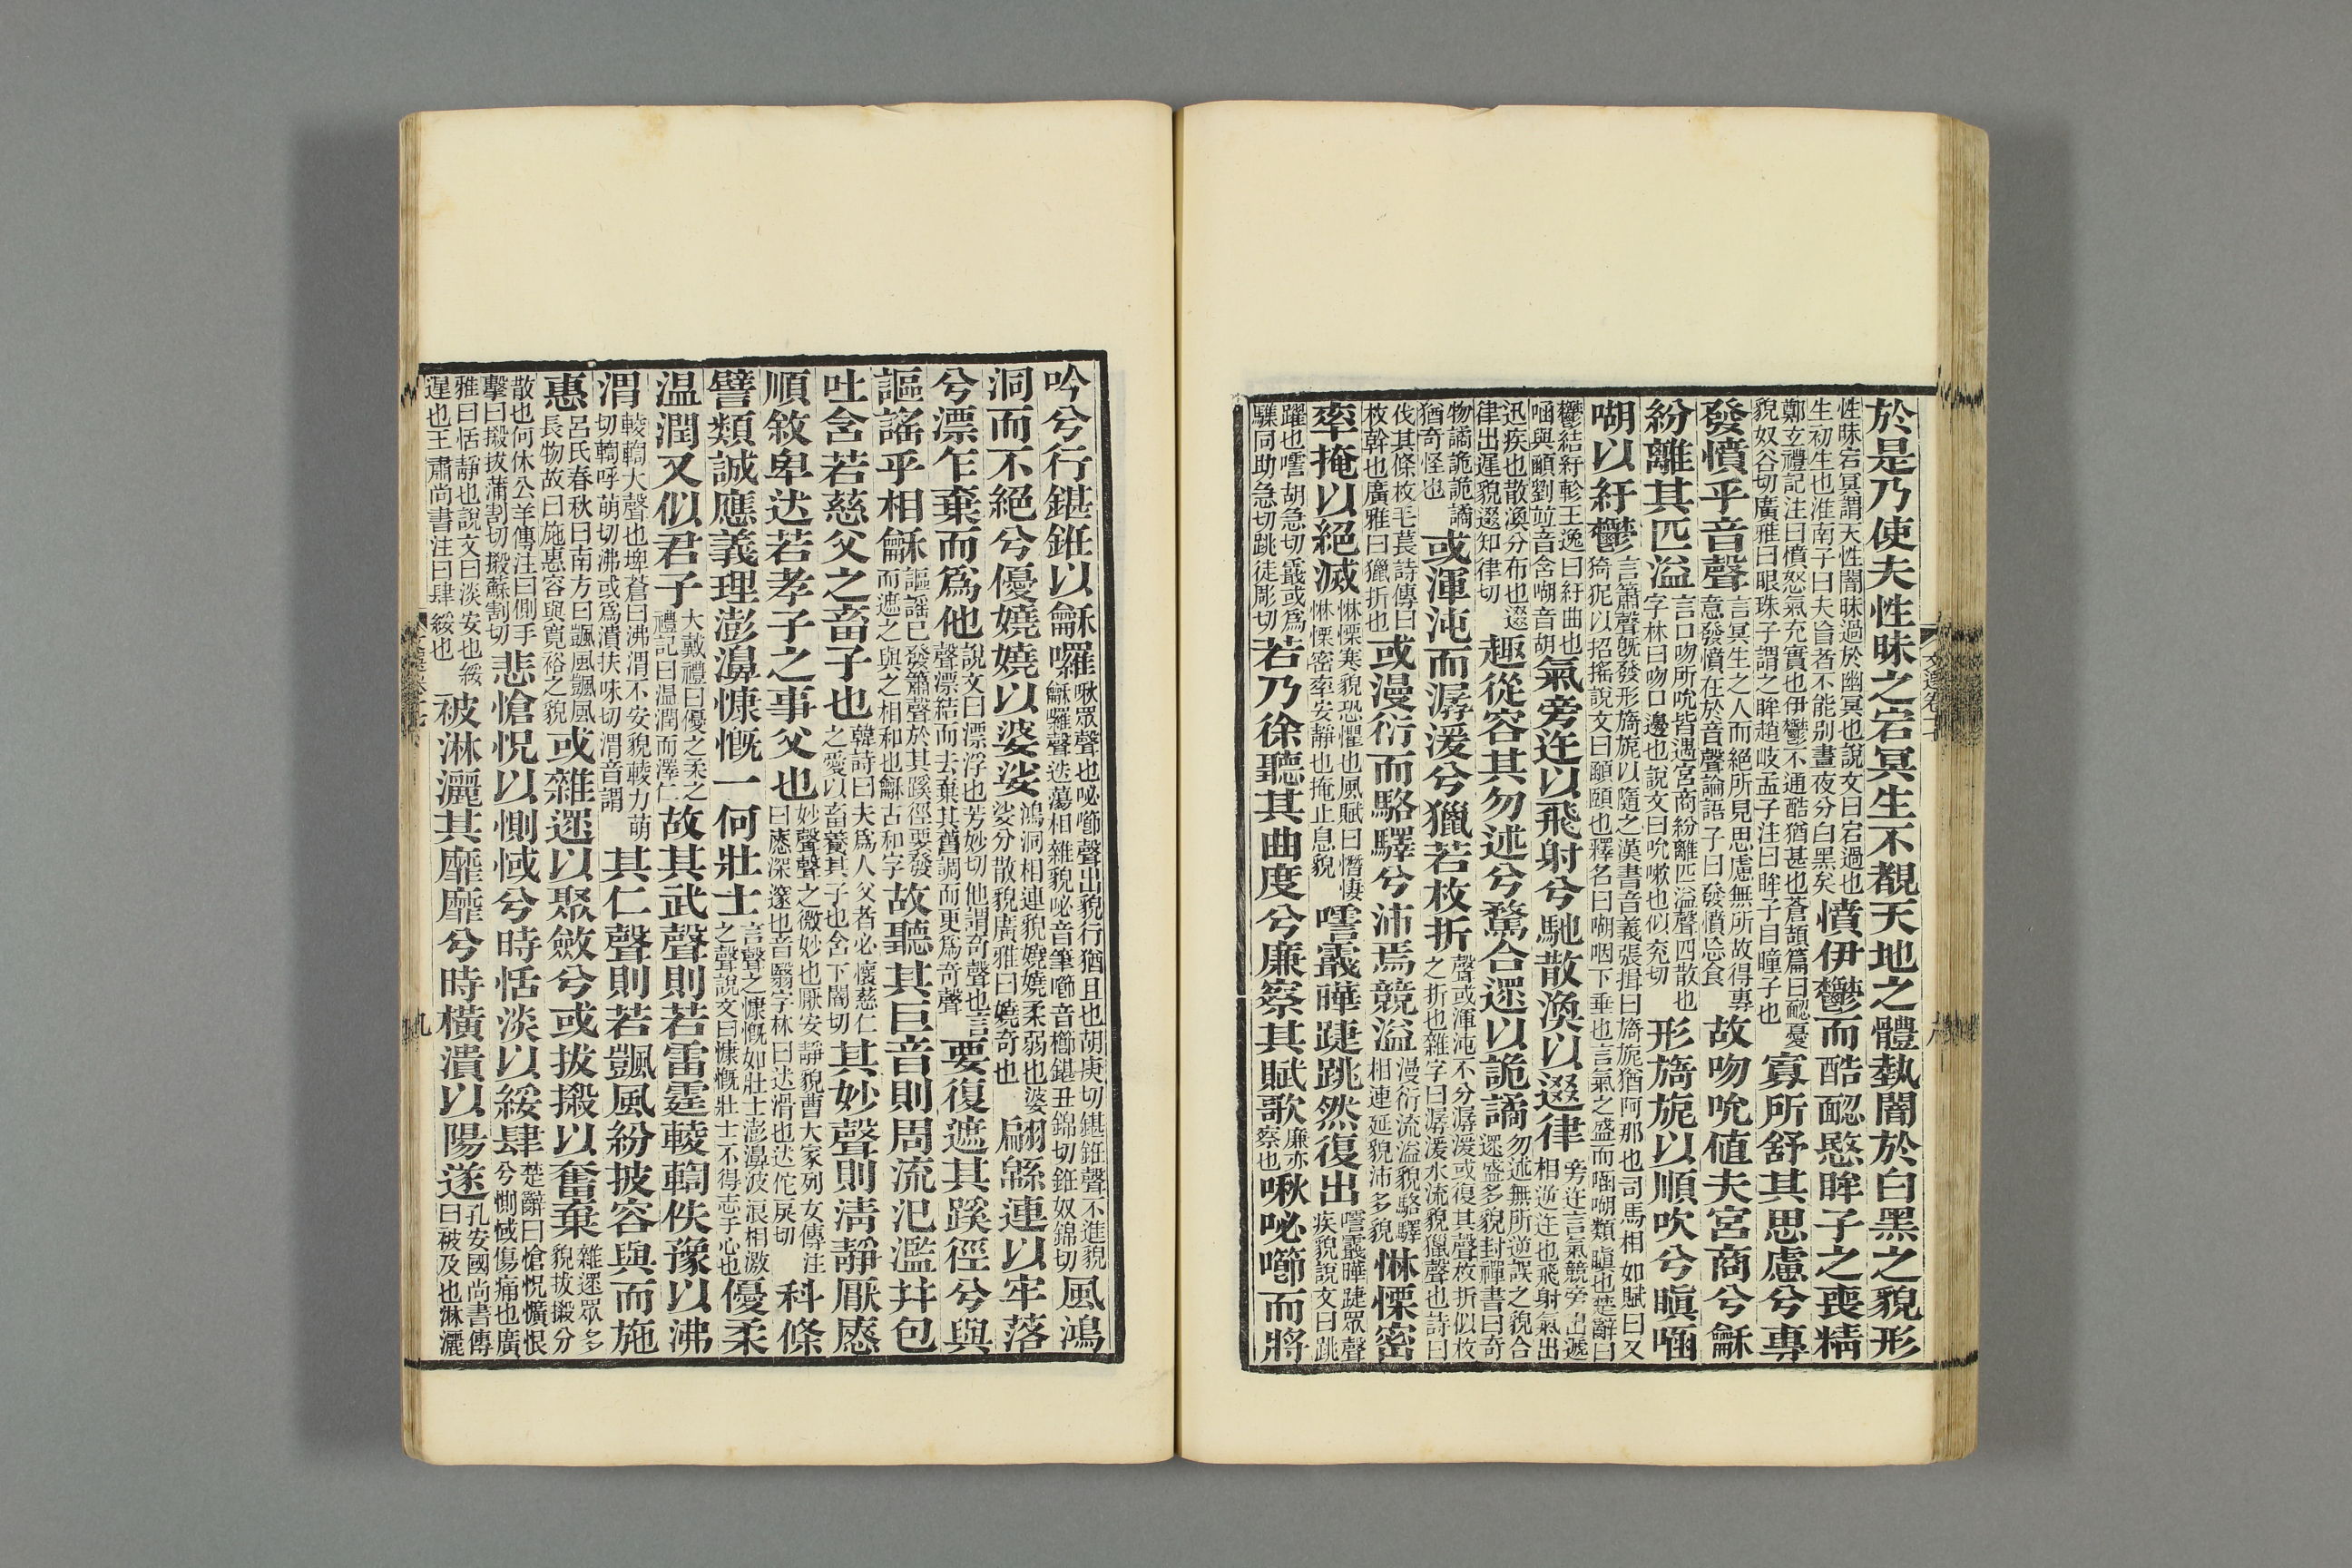 於是乃使夫性昧之宕冥生不覩天地之體埶闇於白黑之貌形
性昧宕冥謂天性闇昧過於幽冥也說文曰宕過也
生初生也淮南子曰夫盲者不能別晝夜分白黑矣
憤伊鬱而酷䏋愍眸子之喪精
鄭玄禮記注曰憤怒氣充實也伊鬱不通酷猶甚也蒼頡篇曰䏋憂
貌奴谷切廣雅曰眼珠子謂之眸趙岐孟子注曰眸子目瞳子也
寡所舒其思慮兮專
發憤乎音聲
言冥生之人而絕所見思慮無所故得專
意發憤在於音聲論語子曰發憤忘食
故吻吮値夫宮商兮龢
紛離其匹溢
言口吻所吮皆遇宮商紛離匹溢聲四散也
字林曰吻口邊也說文曰吮嗽也似兖切
形旖旎以順吹兮瞋㖤
㗅以紆鬱
言簫聲旣發形旖旎以隨之漢書音義張揖曰旖旎猶阿那也司馬相如賦曰又
猗狔以招搖說文曰顄頤也釋名曰㗅咽下垂也言氣之盛而㖤㗅類瞋也楚辭曰
鬱結紆軫王逸曰紆曲也
㖤與顄劉竝音含㗅音胡
氣旁迕以飛射兮馳散渙以逫律
旁迕言氣競旁出遞
相逆迕也飛射氣出
迅疾也散渙分布也逫
律出遲貌逫知律切
趣從容其勿述兮騖合遝以詭譎
勿述無所逆誤之貌合
遝盛多貌封禪書曰奇
物譎詭詭譎
猶奇怪也
或渾沌而潺湲兮獵若枚折
聲或渾沌不分潺湲或復其聲枚折似枚
之折也雜字曰潺湲水流貌獵聲也詩曰
伐其條枚毛萇詩傳曰
枚幹也廣雅曰獵折也
或漫衍而駱驛兮沛焉競溢
漫衍流溢貌駱驛
相連延貌沛多貌
惏慄密
率掩以絕滅
惏慄寒貌恐懼也風賦曰憯悽
惏慄密率安靜也掩止息貌
㘊霵曄踕跳然復出
㘊霵曄踕眾聲
疾貌說文曰跳
躍也㘊胡急切霵或爲
䮶同助急切跳徒彫切
若乃徐聽其曲度兮廉察其賦歌
廉亦
察也
啾咇㘉而將
吟兮行鍖銋以龢囉
啾眾聲也咇㘉聲出貌行猶且也胡庚切鍖銋聲不進貌
龢囉聲迭蕩相雜貌咇音筆㘉音櫛鍖丑錦切銋奴錦切
風鴻
洞而不絕兮優嬈嬈以婆娑
鴻洞相連貌嬈嬈柔弱也婆
娑分散貌廣雅曰嬈苛也
翩緜連以牢落
兮漂乍棄而爲他
說文曰漂浮也芳妙切他謂奇聲也言
聲漂結而去棄其舊調而更爲奇聲
要復遮其蹊徑兮與
謳謠乎相龢
謳謠已發簫聲於其蹊徑要發
而遮之與之相和也龢古和字
故聽其巨音則周流氾濫并包
吐含若慈父之畜子也
韓詩曰夫爲人父者必懷慈仁
之愛以畜養其子也含下闇切
其妙聲則淸靜厭㥷
順敘卑迖若孝子之事父也
妙聲聲之微妙也厭安靜貌曹大家列女傳注
曰㥷深邃也音翳字林曰迖滑也迖佗戾切
科條
譬類誠應義理澎濞慷慨一何壯士
言聲之慷慨如壯士澎濞波浪相激
之聲說文曰慷慨壯士不得志于心也
優柔
温潤又似君子
大戴禮曰優之柔之
禮記曰温潤而澤仁
故其武聲則若雷霆輘輷佚豫以沸
渭
輘輷大聲也埤蒼曰沸渭不安貌輘力萌
切輷呼萌切沸或爲潰扶味切渭音謂
其仁聲則若颽風紛披容與而施
惠
呂氏春秋曰南方曰颽風颽風
長物故曰施惠容與寬裕之貌
或雜遝以聚斂兮或拔摋以奮棄
雜遝眾多
貌拔摋分
散也何休公羊傳注曰側手
擊曰摋拔蒲割切摋蘇割切
悲愴怳以惻惐兮時恬淡以綏肆
楚辭曰愴怳懭悢
兮惻惐傷痛也廣
雅曰恬靜也說文曰淡安也綏
遲也王肅尚書注曰肆緩也
被淋灑其靡靡兮時橫潰以陽遂
孔安國尚書傳
曰被及也淋灑
文選卷十七
八
九